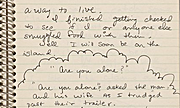 a way to live.
I finished getting checked
to see if I or anyone else
smuggled food with them.
I will soon be on the
island
"Are you alone?"
"Are you alone? asked the man
and his wife as I trudged
past their trailer.